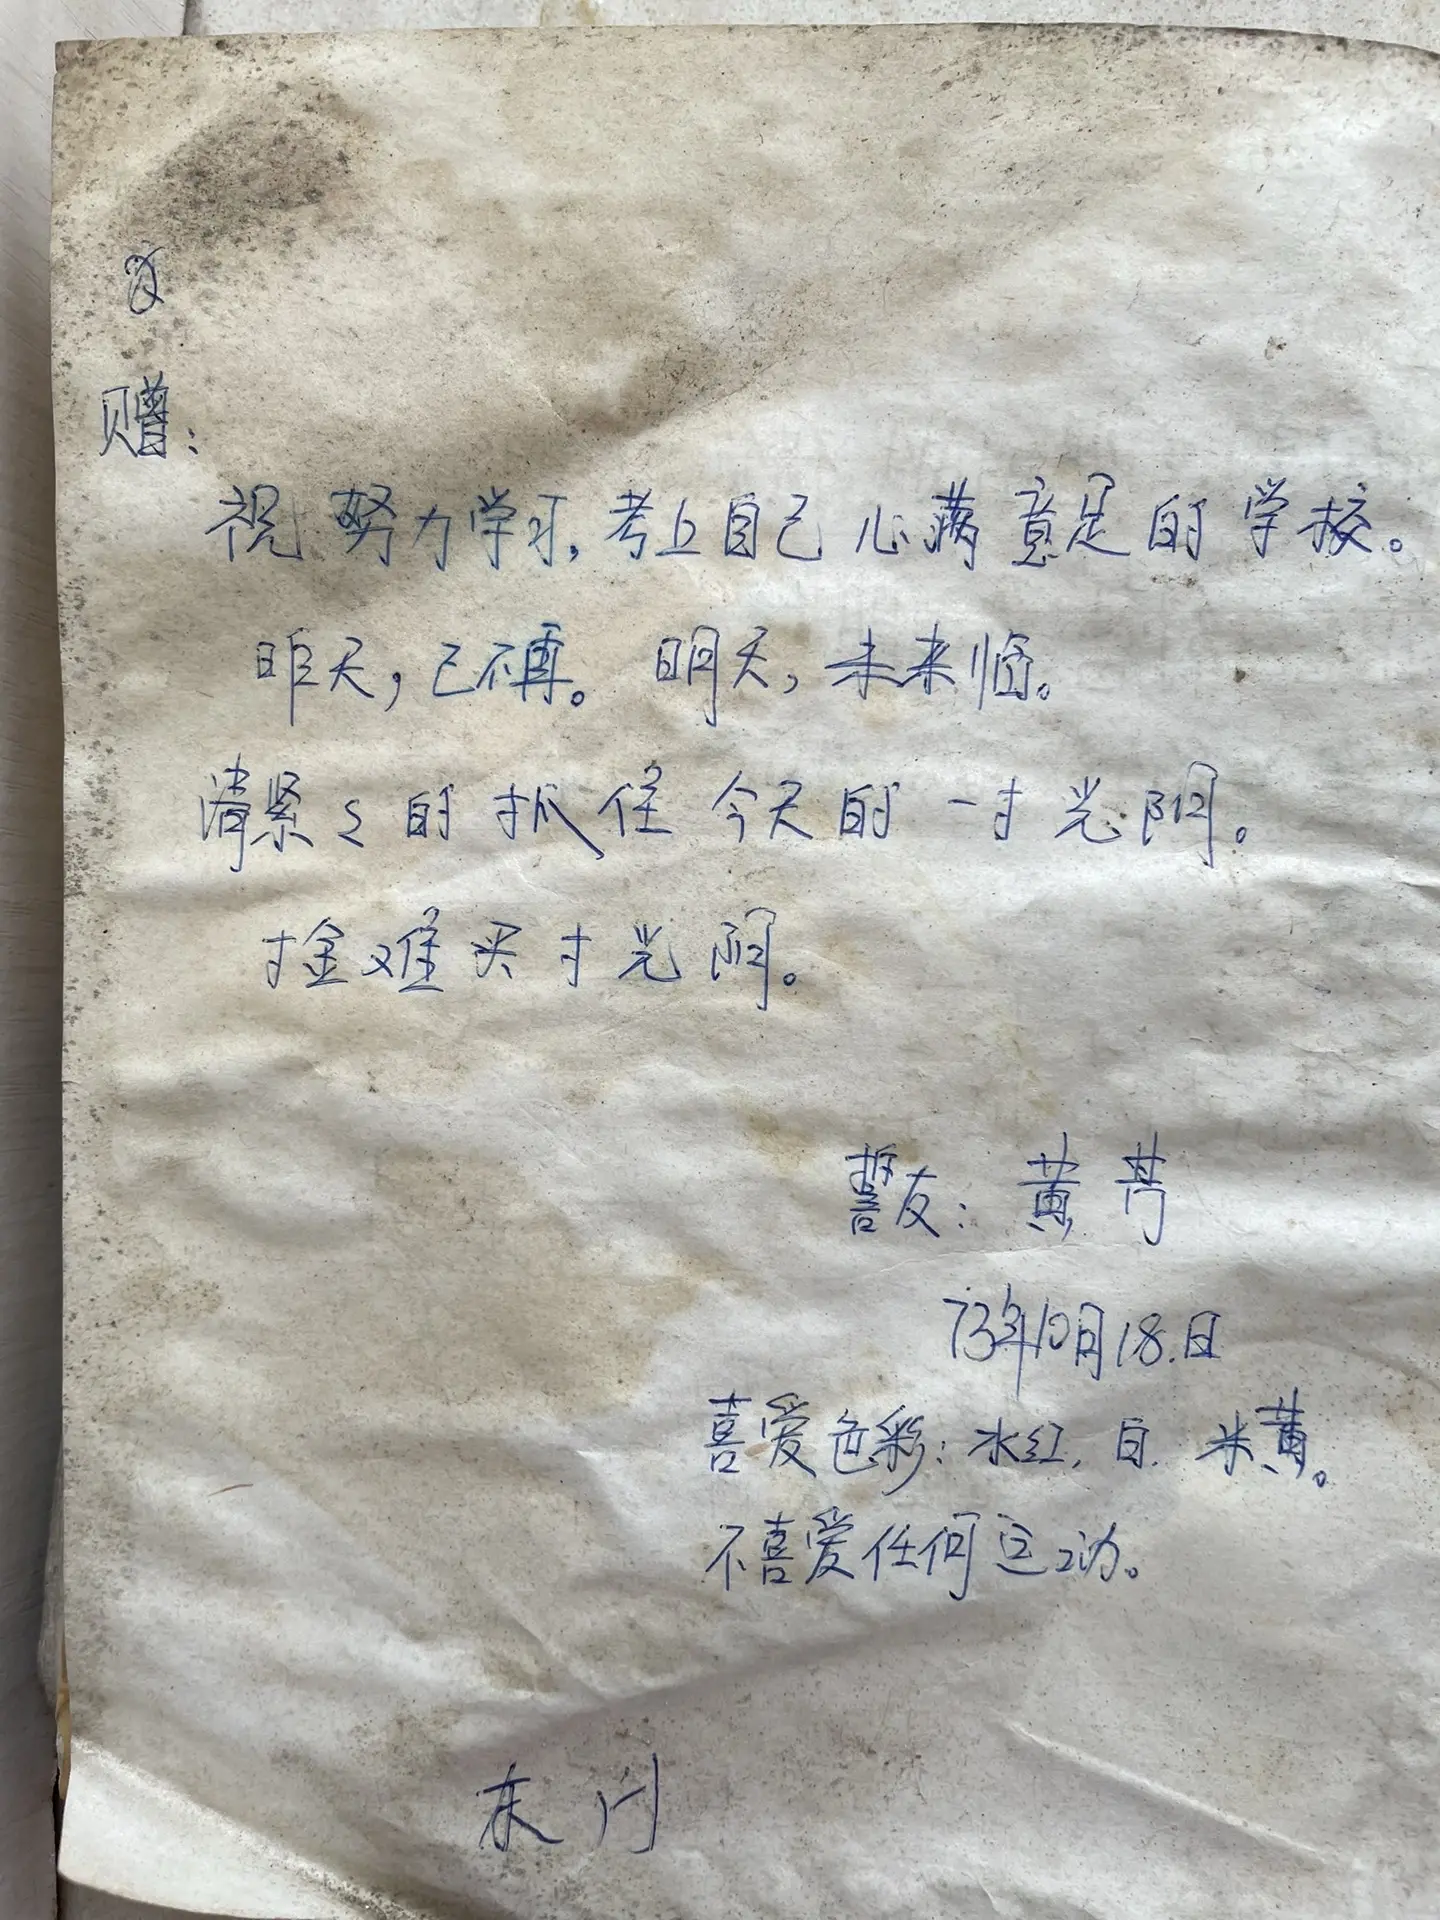 赠：
祝努力学习，考上自己心满意足的学校。
昨天，已不再。明天，未来临。
请紧々的抓住今天的一寸光阴。
寸金难买寸光阴。
誓友：黄芎
73年10月18.日
喜爱色彩：水红，白.米黄。
不喜爱任何运动。
东川